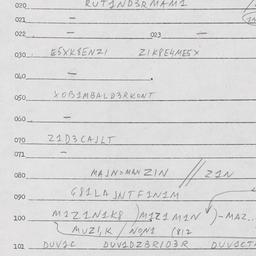 020 RUT1ND3RMAM1
021 —
022 — 023 —
030 E5XK8ENZI ZIKPE4ME5X
040 —
050 X0B1MBALD3RKONT
060 —
070 Z1D3CAJLT
071 —
080 MAJN=MAN ZIN // Z1N
090 G81LAJNTF1N1M
100 M1Z1N1K8 ) M1Z1M1N ) - MAZ...
MUZI,K / NON1 (812
101 DUV1C DUV1DZ3R103R DUV1CT